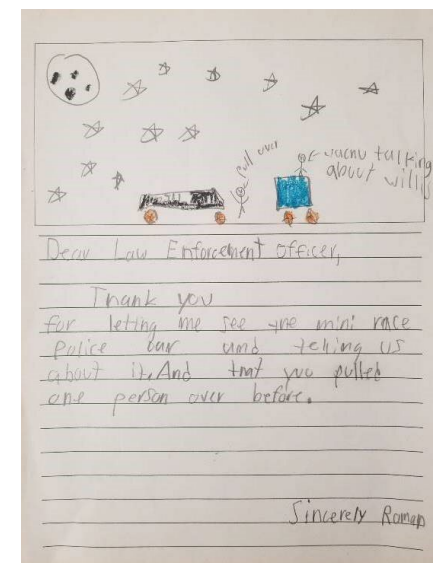 Pull over
talking
about willy
Dear Law Enforcement officer,
Thank you
for letting me see the mini race
Police car and teling us
about it. And that you pulled
one person over before.
Sincerely Roman